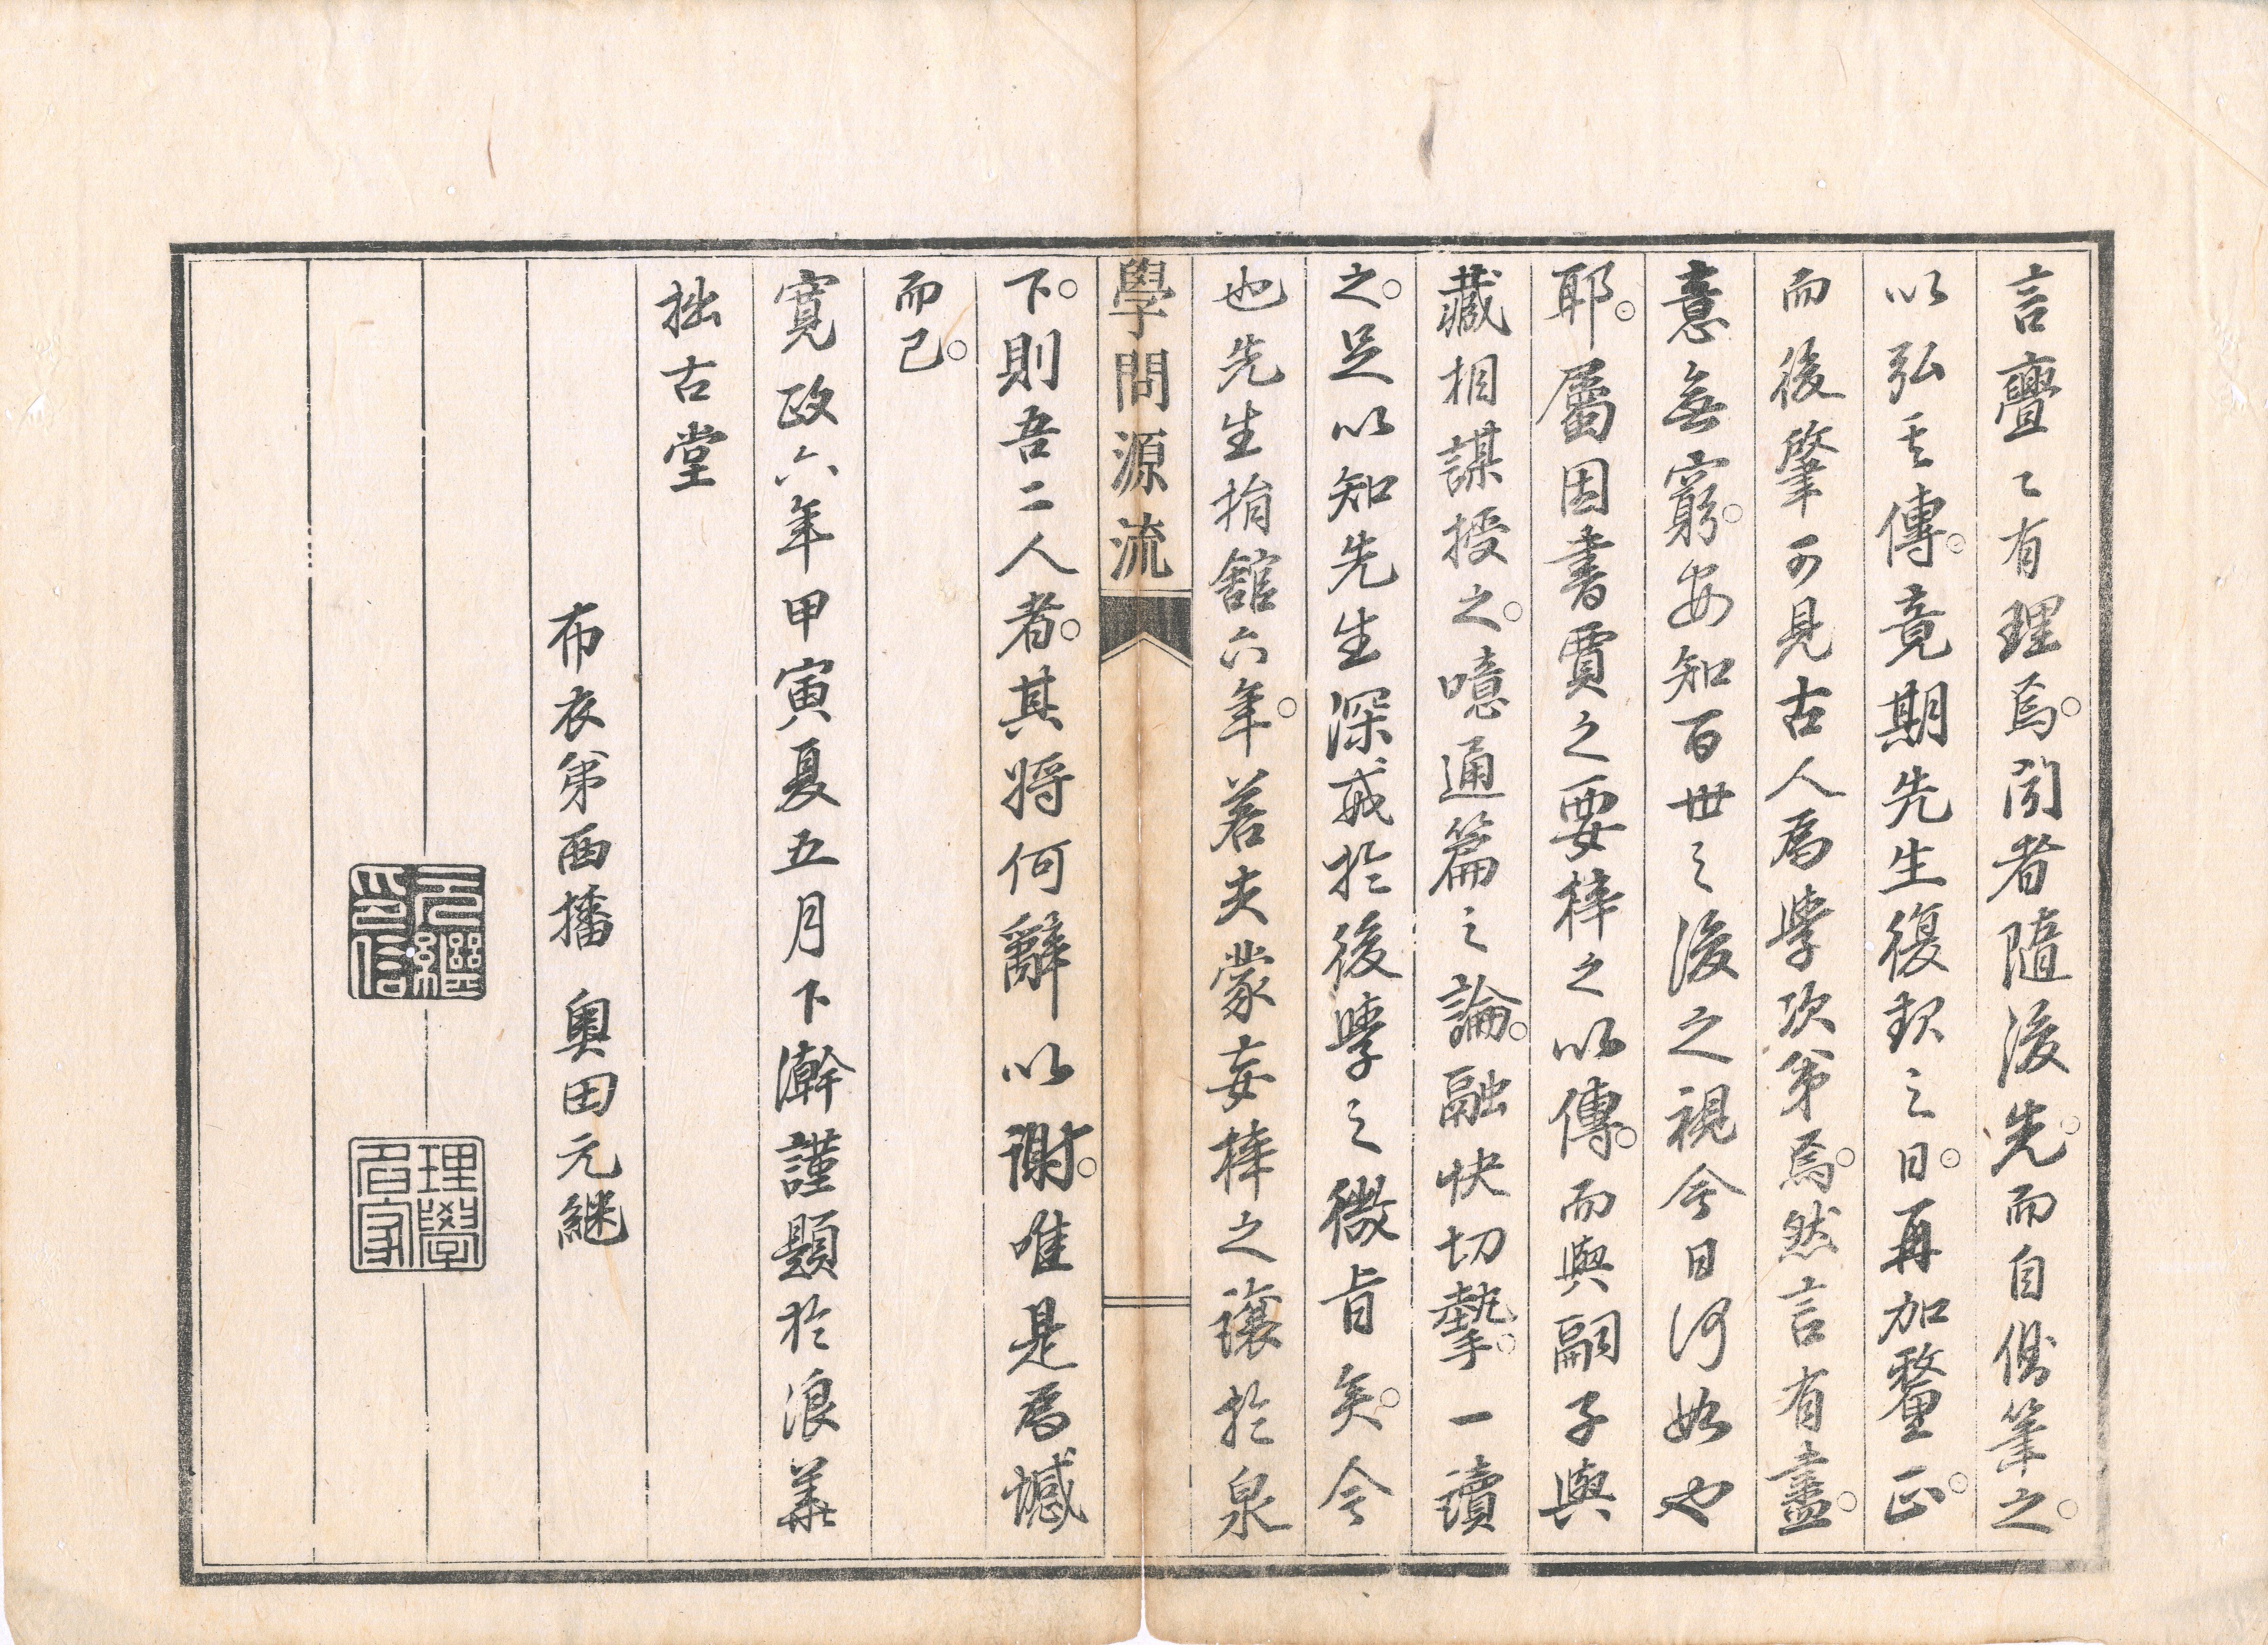 言亹々有理焉。聞者隨後先。而自備筆之。
以弘其傳。竟期先生復教之日。再加釐正。
而後肇可見古人為學次第焉。然言有盡。
意無窮。安知百世之後之視今日何如也
耶。屬因書賈之要梓之以傳。而與嗣子與
藏相謀授之。噫通篇之論。融快切摯。一讀
之。足以知先生深戒於後學之微旨矣。今
也先生捐館六年。若夫蒙妄梓之讓於泉
學問源流
下。則吾二人者。其將何辭以謝。唯是為憾
而已。
寬政六年甲寅夏五月下澣謹題於浪華
拙古堂
布衣弟西播 奧田元継
元繼印信
理學名家